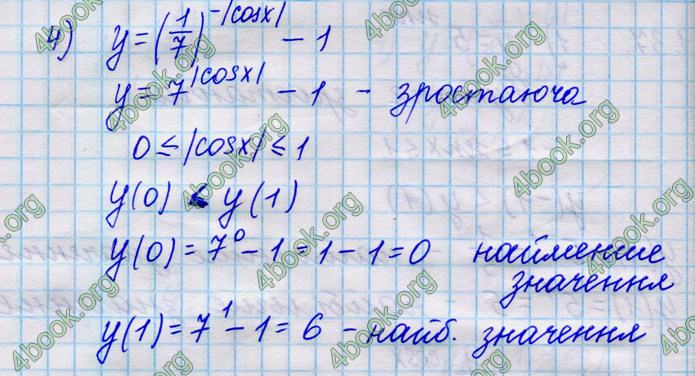 4) y = (1/7)^-|cosx| - 1
y = 7^|cosx| - 1 - зростаюча
0 ≤ |cosx| ≤ 1
y(0) < y(1)
y(0) = 7^0 - 1 = 1 - 1 = 0 найменше
значення
y(1) = 7^1 - 1 = 6 - найб. значення
4book.org